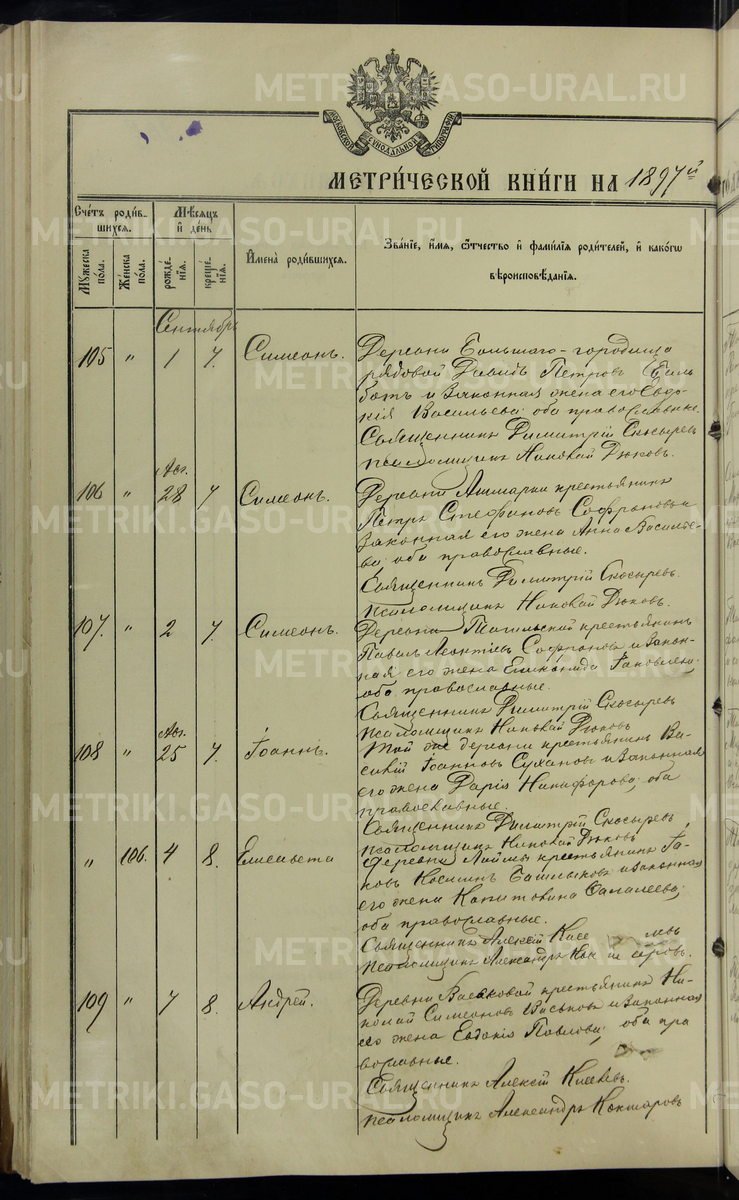 МЕТРИ́ЧЕСКОЙ КНИ́ГИ НА 1897й
Сче́тъ роди́в-
шихся.
Му́жеска
по́ла.
Же́нска
по́ла.
Мѣ́сяцъ
и҆ де́нь
рожде́-
нїя.
креще́-
нїя.
И҆мена̀ роди́вшихся.
Зва́нїе, и҆́мя, ѻ҆́тчество и҆ фами́лїя роди́телей, и҆ како́гѡ
вѣроисповѣ́данїя.
Сентябрь
105 " 1 7. Симеонъ.
Деревни Большаго-городища
рядовой Давидъ Петровъ
и законная жена его Евдо-
кія Васильева оба православные.
Священникъ Димитрій Скосыревъ
псаломщикъ Николай Дюковъ.
Авг.
106 " 28 7 Симеонъ.
Деревни крестьянинъ
Петръ Стефановъ Софроновъ и
законная его жена Анна Василье-
ва; оба православные.
Священникъ Димитрій Скосыревъ.
псаломщикъ Николай Дюковъ.
107. " 2 7. Симеонъ.
Деревни крестьянинъ
Павелъ Леонтіевъ Софроновъ и закон-
ная его жена Яковлева,
оба православные.
Священникъ Димитрій Скосыревъ
псаломщикъ Николай Дюковъ
Авг.
108 " 25 7. Іоаннъ.
Той же деревни крестьянинъ Ва-
силій Іоанновъ Сухановъ и законная
его жена Дарія Никифорова; оба
православные.
Священникъ Димитрій Скосыревъ
псаломщикъ Николай Дюковъ
" 106. 4 8. Елисавета
Деревни крестьянинъ Я 
ковъ Косминъ Башлыковъ и законная
его жена Капитолина
оба православные.
Священникъ Алексѣй
псаломщикъ Александръ
109 " 7 8. Андрей.
Деревни крестьянинъ Ни-
колай Симеоновъ Васьковъ и законная
его жена Евдокія Павлова; оба пра
вославные.
Священникъ Алексѣй Киселевъ.
псаломщикъ Александръ Кокшаровъ
METRIKI.GASO-URAL.RU